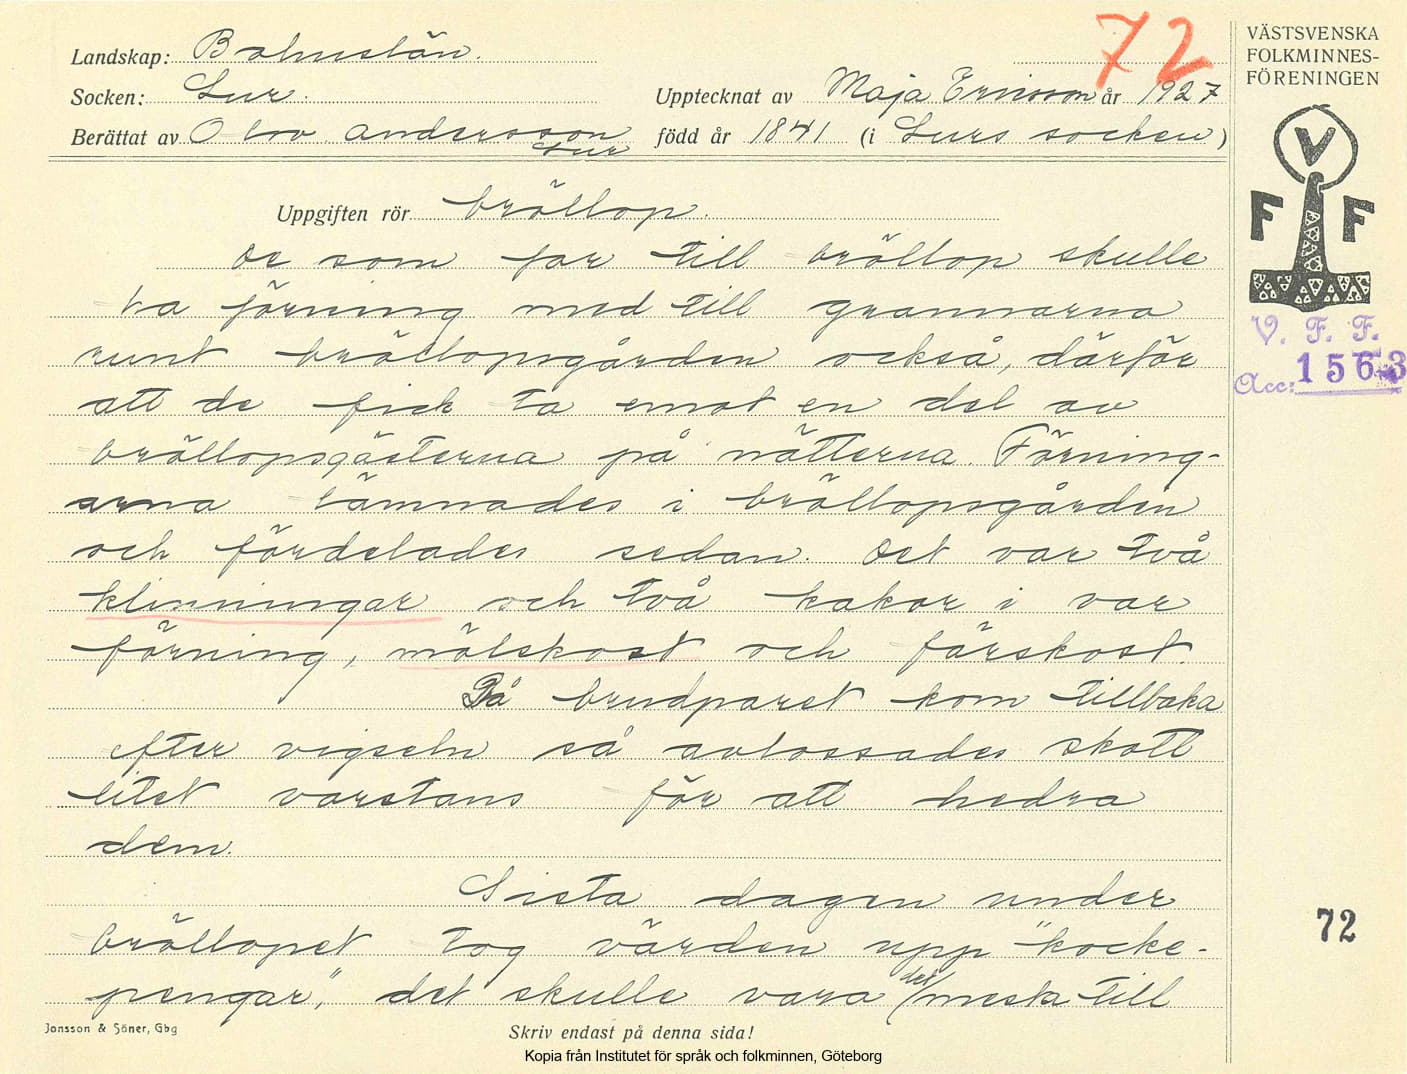 72
Landskap: Bohuslän.
Socken: Lur.
Upptecknat av Maja Ericsson år 1927
Berättat av Olov Andersson Lur
född år 1841 (i Lurs socken)
VÄSTSVENSKA
FOLKMINNES-
FÖRENINGEN
V
F F
V. F. F.
Acc: 1563
Uppgiften rör bröllop.
De som for till bröllop skulle
ha förning med till grannarna
runt bröllopsgården också, därför
att de fick ta emot en del av
bröllopsgästerna på nätterna. Förning-
arna lämnades i bröllopsgården
och fördelades sedan. Det var två
klinningar och två kakor i var
förning, mölskost och färskost.
Då brudparet kom tillbaka
efter vigseln så avlossades skott
litet varstans för att hedra
dem.
Sista dagen under
bröllopet tog värden upp "kocke-
pengar", det skulle vara det mesta till
72
Jonsson & Söner, Gbg
Skriv endast på denna sida!
Kopia från Institutet för språk och folkminnen, Göteborg